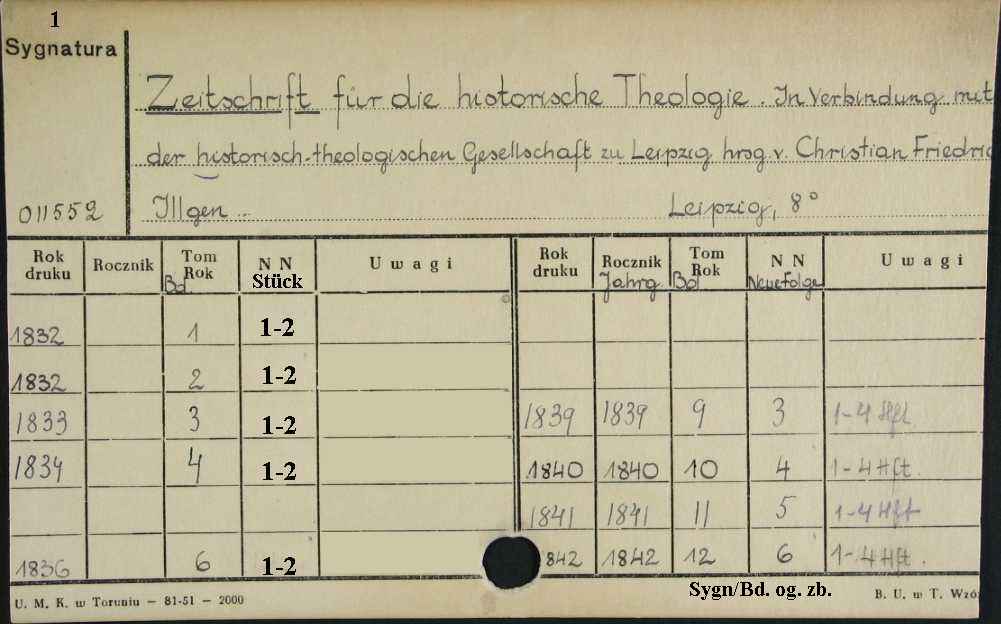 1
Sygnatura
Zeitschrift für die historische Theologie. In Verbindung mit
der historisch-theologischen Gesellschaft zu Leipzig hrsg. v. Christian Friedric
011552 Illgen Leipzig, 8°
Rok druku Rocznik Tom Rok Bd. N N Stück Uwagi Rok druku Rocznik Jahrg. Tom Rok Bd N N Neue Folge Uwagi
1832 1 1-2
1832 2 1-2
1833 3 1-2 1839 1839 9 3 1-4 Hft.
1834 4 1-2 1840 1840 10 4 1-4 Hft.
1841 1841 11 5 1-4 Hft
1836 6 1-2 842 1842 12 6 1-4 Hft.
Sygn/Bd. og. zb.
U. M. K. w Toruniu – 81-51 – 2000 B. U. w T. Wzó